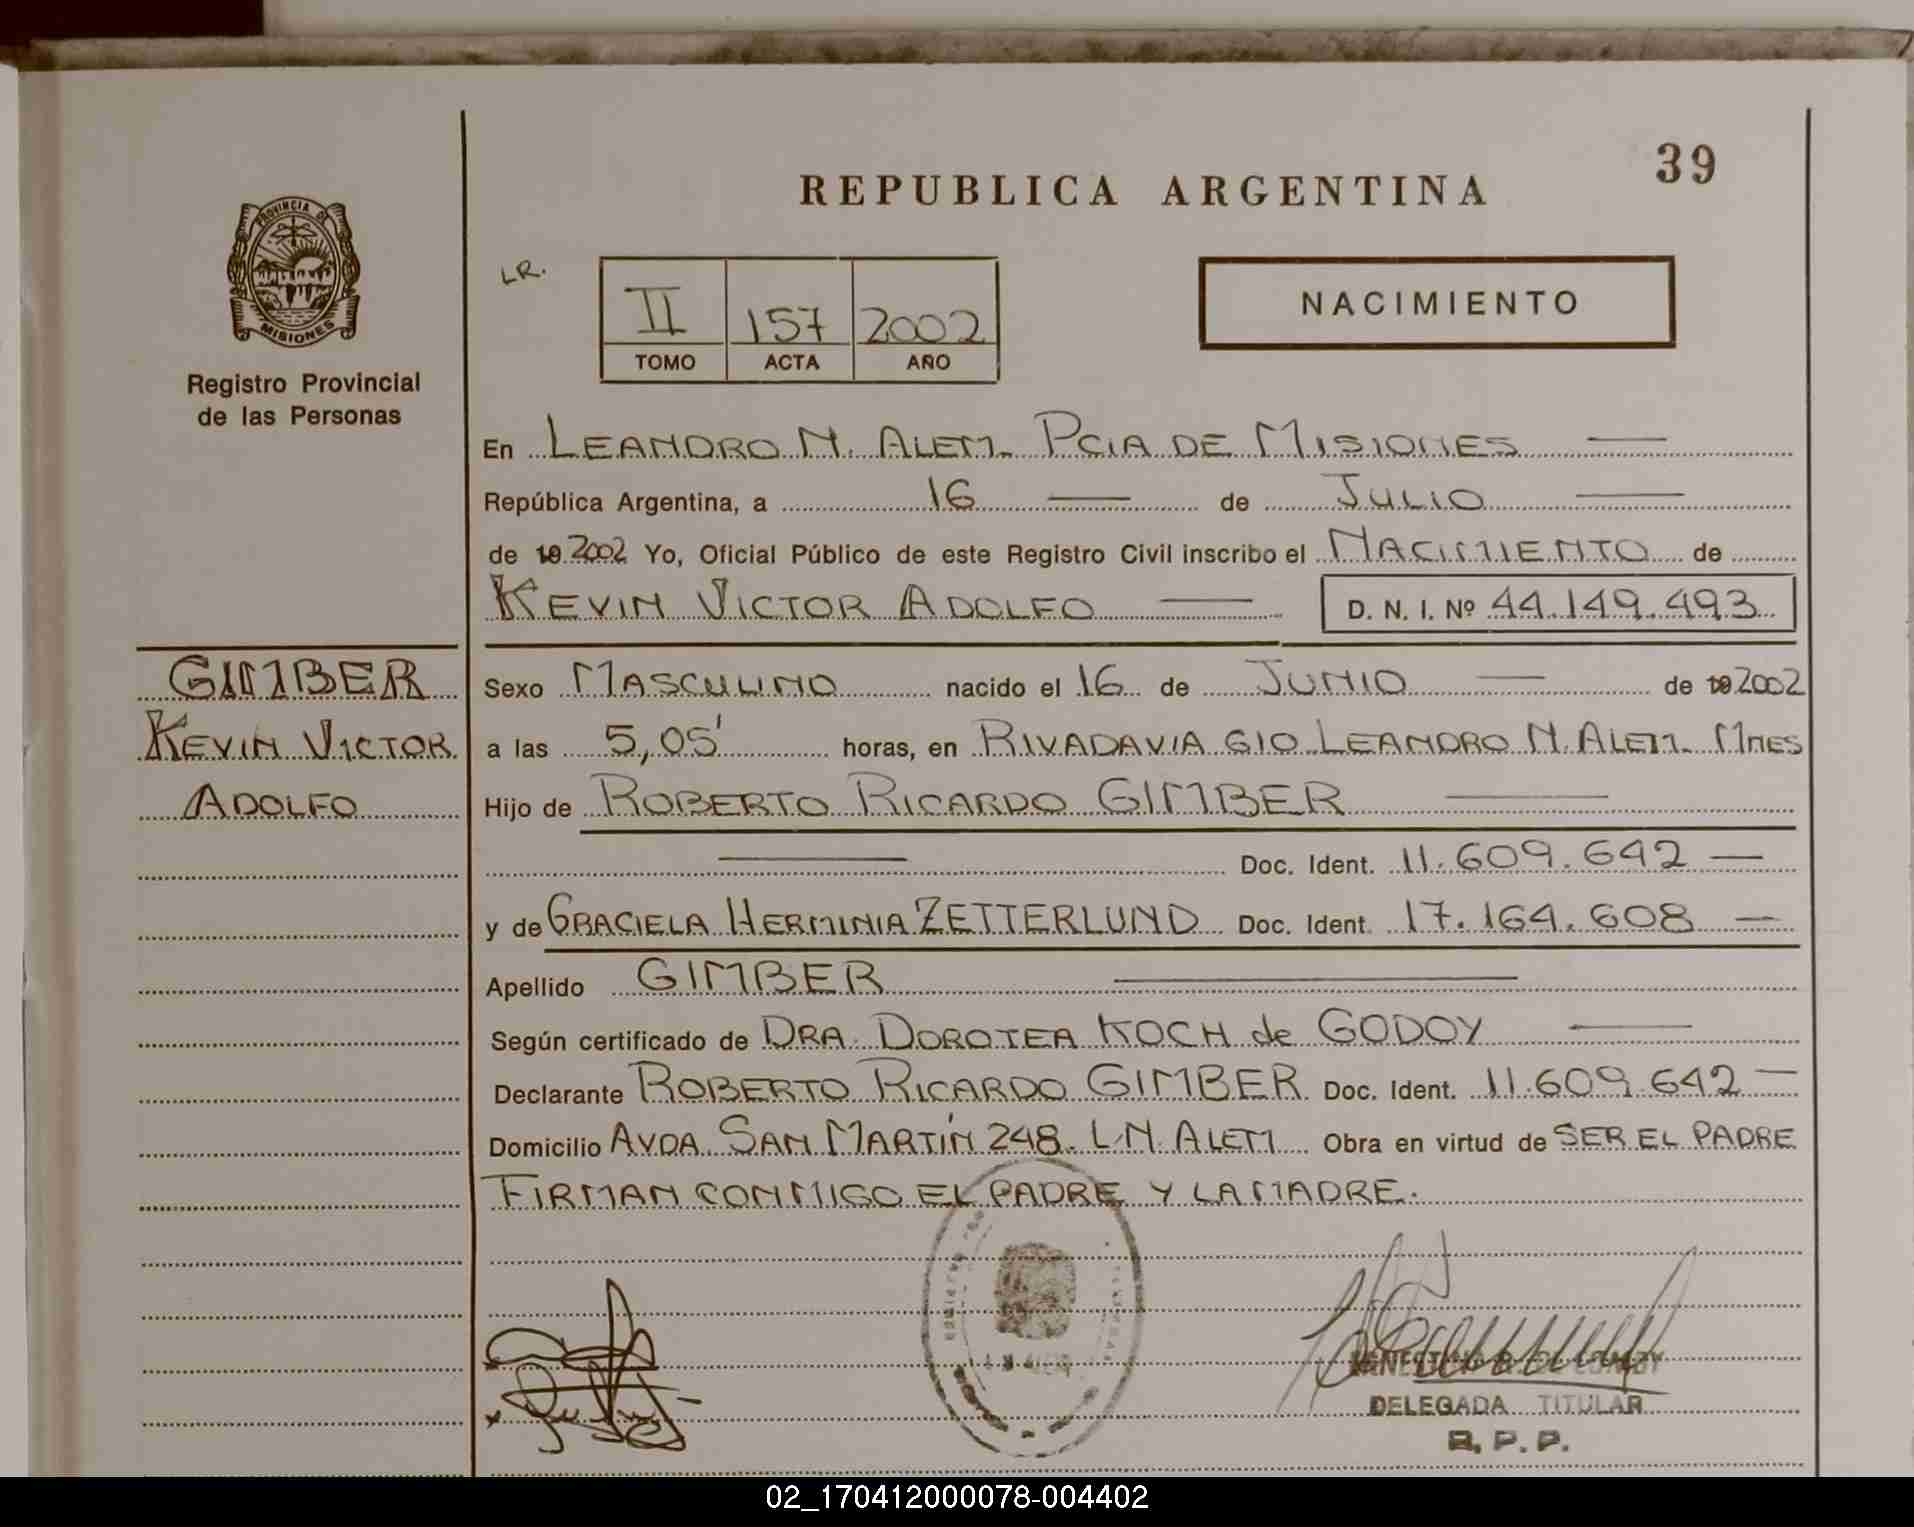 39
REPUBLICA ARGENTINA
PROVINCIA DE
MISIONES
Registro Provincial
de las Personas
LR.
II 157 2002
TOMO ACTA AÑO
NACIMIENTO
En LEANDRO N. ALEM. PCIA DE MISIONES
República Argentina, a 16 de JULIO
de 19 2002 Yo, Oficial Público de este Registro Civil inscribo el NACIMIENTO de
KEVIN VICTOR ADOLFO D. N. I. Nº 44.149.493
GIMBER
KEVIN VICTOR
ADOLFO
Sexo MASCULINO nacido el 16 de JUNIO de 19 2002
a las 5,05' horas, en RIVADAVIA 610 LEANDRO N. ALEM. MNES
Hijo de ROBERTO RICARDO GIMBER
Doc. Ident. 11.609.642
y de GRACIELA HERMINIA ZETTERLUND Doc. Ident. 17.164.608
Apellido GIMBER
Según certificado de DRA. DOROTEA KOCH de GODOY
Declarante ROBERTO RICARDO GIMBER Doc. Ident. 11.609.642
Domicilio AVDA. SAN MARTÍN 248. L.N. ALEM Obra en virtud de SER EL PADRE
FIRMAN CONMIGO EL PADRE Y LA MADRE.
DELEGADA TITULAR
R. P. P.
02_170412000078-004402